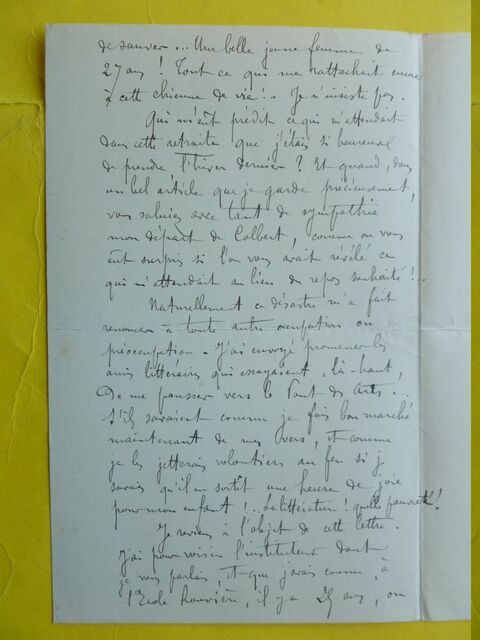 de sauver... Une belle jeune femme de
27 ans ! Tout ce qui me rattachait encore
à cette chienne de vie ! - Je n'insiste pas.
Qui m'eût prédit ce qui m'attendait
dans cette retraite que j'étais si heureux
de prendre l'hiver dernier ? Et quand, dans
un bel article que je garde précieusement,
vous saluiez avec tant de sympathie
mon départ de Colbert, comme on vous
eût surpris si l'on vous avait révélé ce
qui m'attendait au lieu du repos souhaité !..
Naturellement ce désastre m'a fait
renoncer à toute autre occupation ou
préoccupation - J'ai envoyé promener les
amis littéraires qui essayaient, là-haut,
De me pousser vers le Pont des Arts...
S'ils savaient comme je fais bon marché
maintenant de mes vers, et comme
je les jetterais volontiers au feu si je
savais qu'il en sortît une heure de joie
pour mon enfant !.. La littérature ! quelle pauvreté !
Je reviens à l'objet de cette lettre.
J'ai pour voisin l'instituteur dont
je vous parlais, et que j'avais connu, à
l'Ecole Rouvière, il y a 25 ans, ou